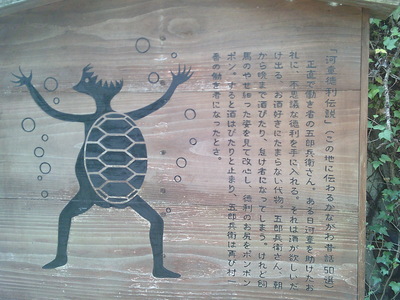 「河童徳利伝説」（この地に伝わるかながわ昔話50選）
正直で働き者の五郎兵衛さん。ある日河童を助けたお
礼に、不思議な徳利を手に入れる。それは酒が欲しいだ
け出る、お酒好きにたまらない代物。五郎兵衛さん、朝
から晩まで酒びたり、怠け者になってしまう。けれど飼
馬のやせ細った姿を見て改心し、徳利のお尻をポンポン
ポン。すると酒はぴたりと止まり、五郎兵衛は再び村一
番の働き者になったとさ。